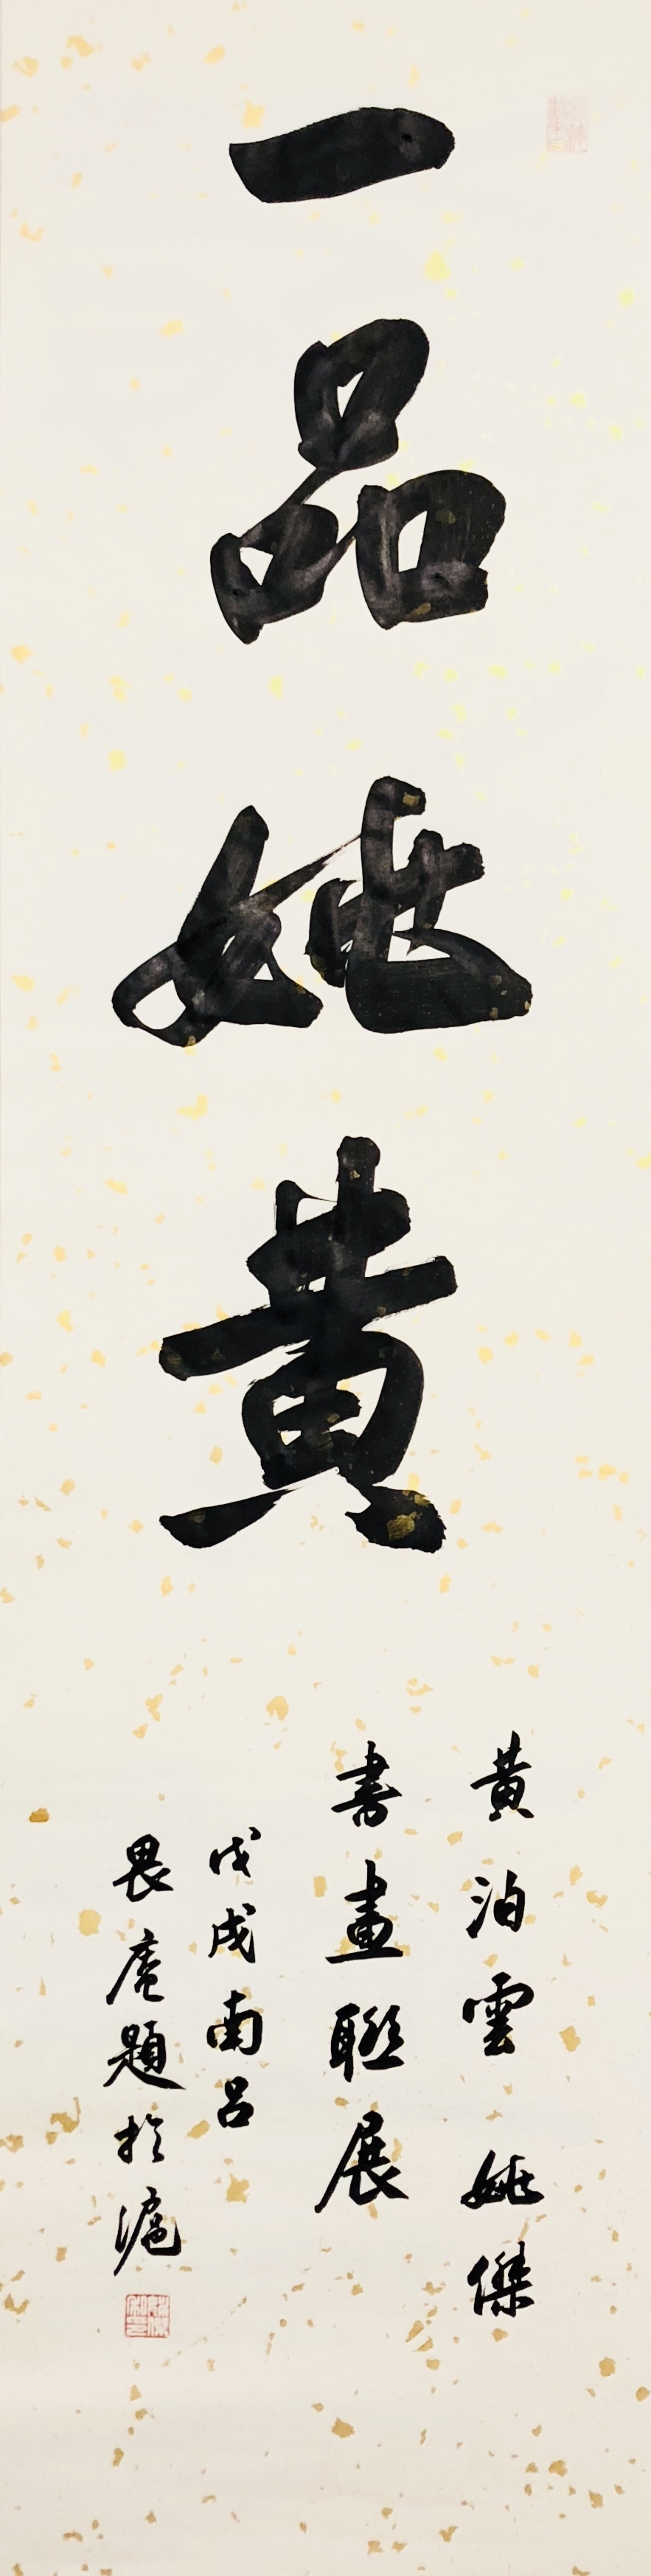 一品姚黄
黄泊雲 姚傑
書畫聯展
戊戌南吕
畏庵題於滬